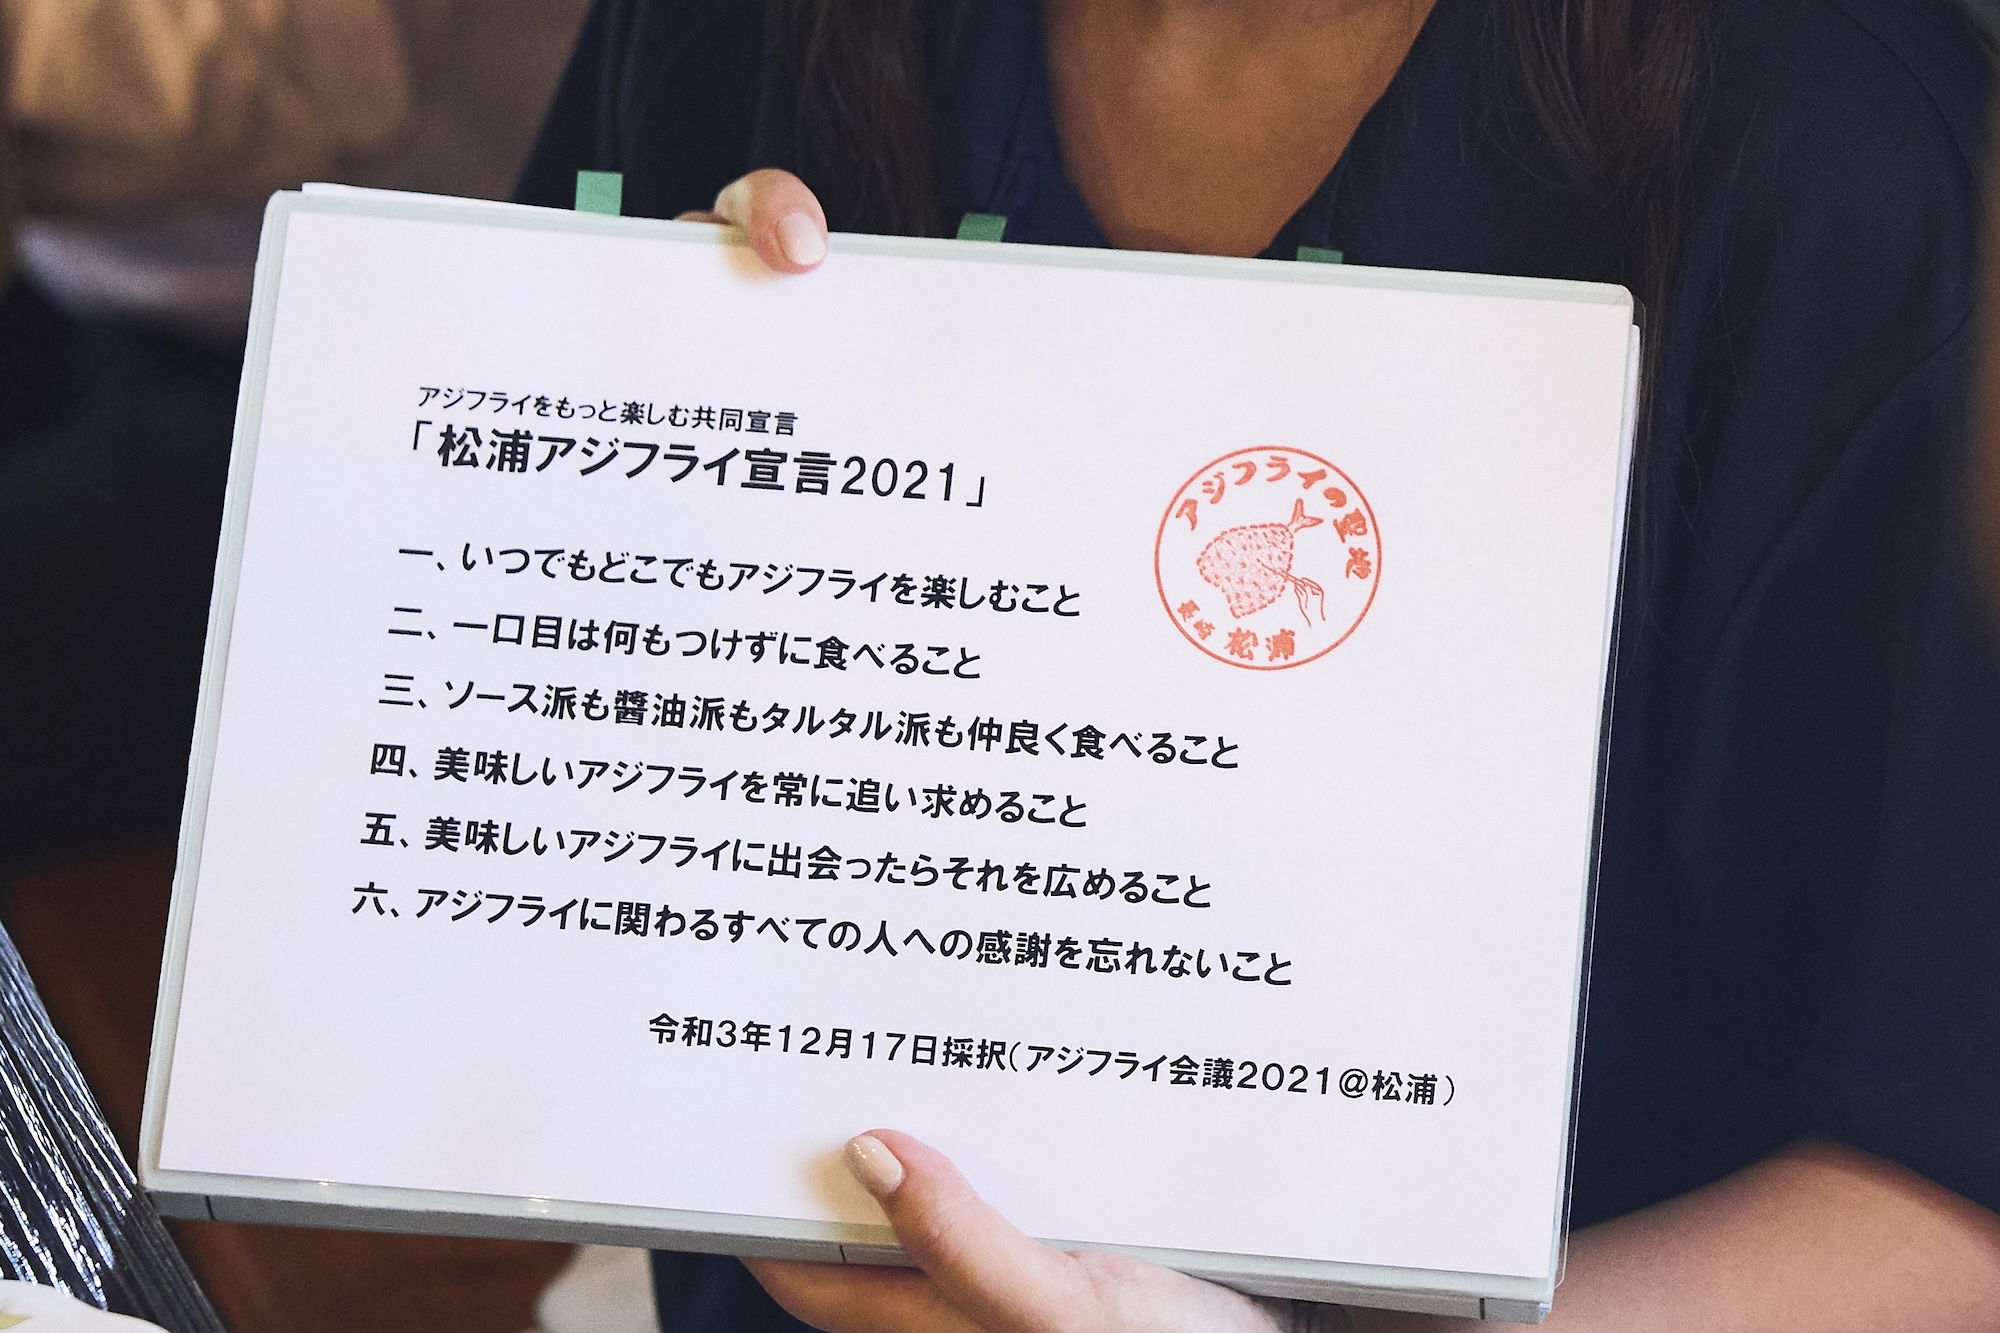 アジフライをもっと楽しむ共同宣言
「松浦アジフライ宣言2021」
一、いつでもどこでもアジフライを楽しむこと
二、一口目は何もつけずに食べること
三、ソース派も醬油派もタルタル派も仲良く食べること
四、美味しいアジフライを常に追い求めること
五、美味しいアジフライに出会ったらそれを広めること
六、アジフライに関わるすべての人への感謝を忘れないこと
令和3年12月17日採択(アジフライ会議2021@松浦)
アジフライの聖地
長崎 松浦